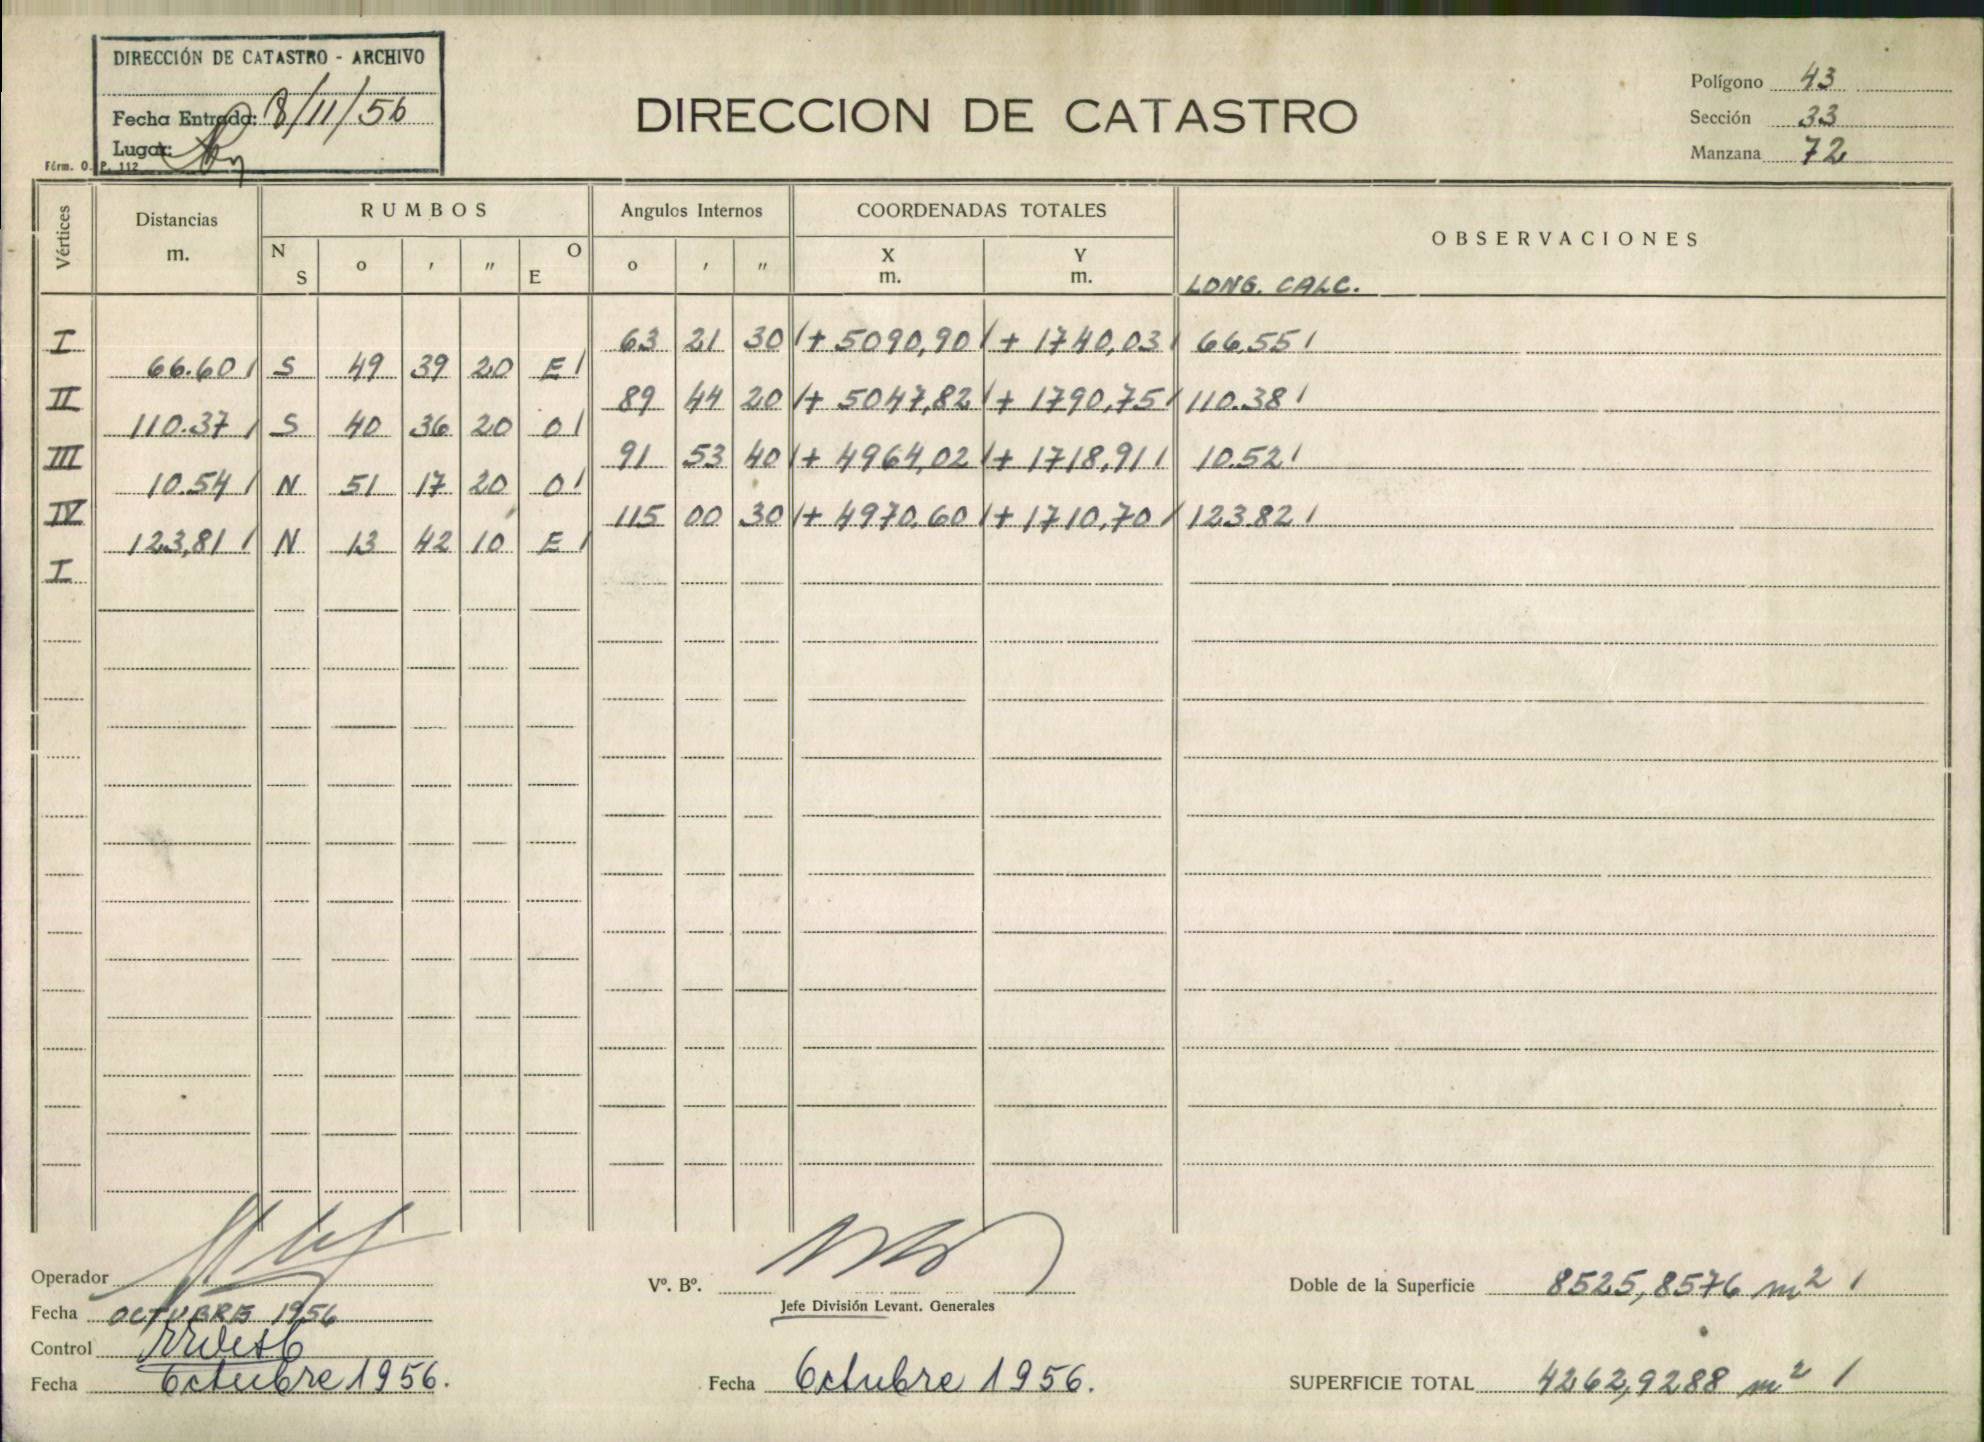 DIRECCIÓN DE CATASTRO - ARCHIVO
Fecha Entrada: 8/11/56
Lugar:
Fórm. O. P. 112
DIRECCION DE CATASTRO
Polígono 43
Sección 33
Manzana 72
Vértices Distancias m. RUMBOS Angulos Internos COORDENADAS TOTALES OBSERVACIONES
N S o ′ ″ O E o ′ ″ X m. Y m. LONG. CALC.
I 63 21 30 + 5090,90 + 1740,03 66.55
66.60 S 49 39 20 E
II 89 44 20 + 5047,82 + 1790,75 110.38
110.37 S 40 36 20 O
III 91 53 40 + 4964,02 + 1718,91 10.52
10.54 N 51 17 20 O
IV 115 00 30 + 4970,60 + 1710,70 123.82
123,81 N 13 42 10 E
I
Operador
Fecha OCTUBRE 1956
Control
Fecha Octubre 1956.
Vº. Bº.
Jefe División Levant. Generales
Fecha Octubre 1956.
Doble de la Superficie 8525,8576 m²
SUPERFICIE TOTAL 4262,9288 m²